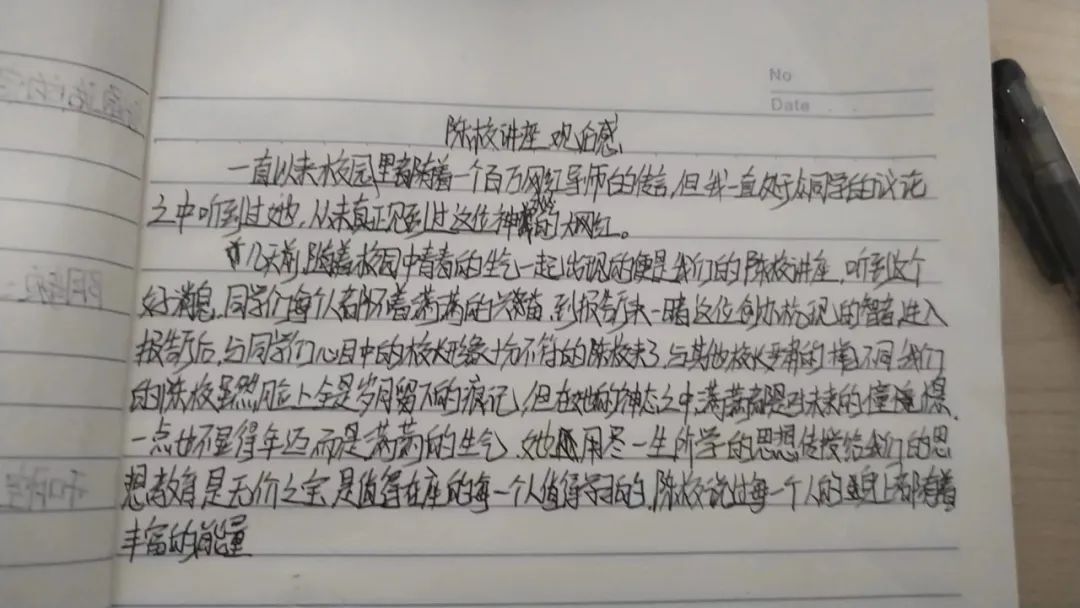 No
Date
陈校讲座观后感
一直以来校园里都随着一个百万网红导师的传言,但我一直处于众同学的议论
之中听到过她,从未真正见到过这位神秘的大网红。
几天前,随着校园中青春的生气一起出现的便是我们的陈校讲座,听到这个
好消息,同学们每个人都怀着满满的兴奋,到报告厅来一睹这位的智者,进入
报告厅后,与同学们心目中的校长形象十分不符的陈校来了,与其他校长严肃的不同,我们
的陈校虽然脸上全是岁月留下的痕记,但在她的神态之中,满满都是对未来的憧憬,
一点也不显得年迈而是满满的生气,她用尽一生所学的思想传授给我们的思
想教育是无价之宝,是值得在座的每一个人值得学习的,陈校说过每一个人的身上都有着
丰富的能量